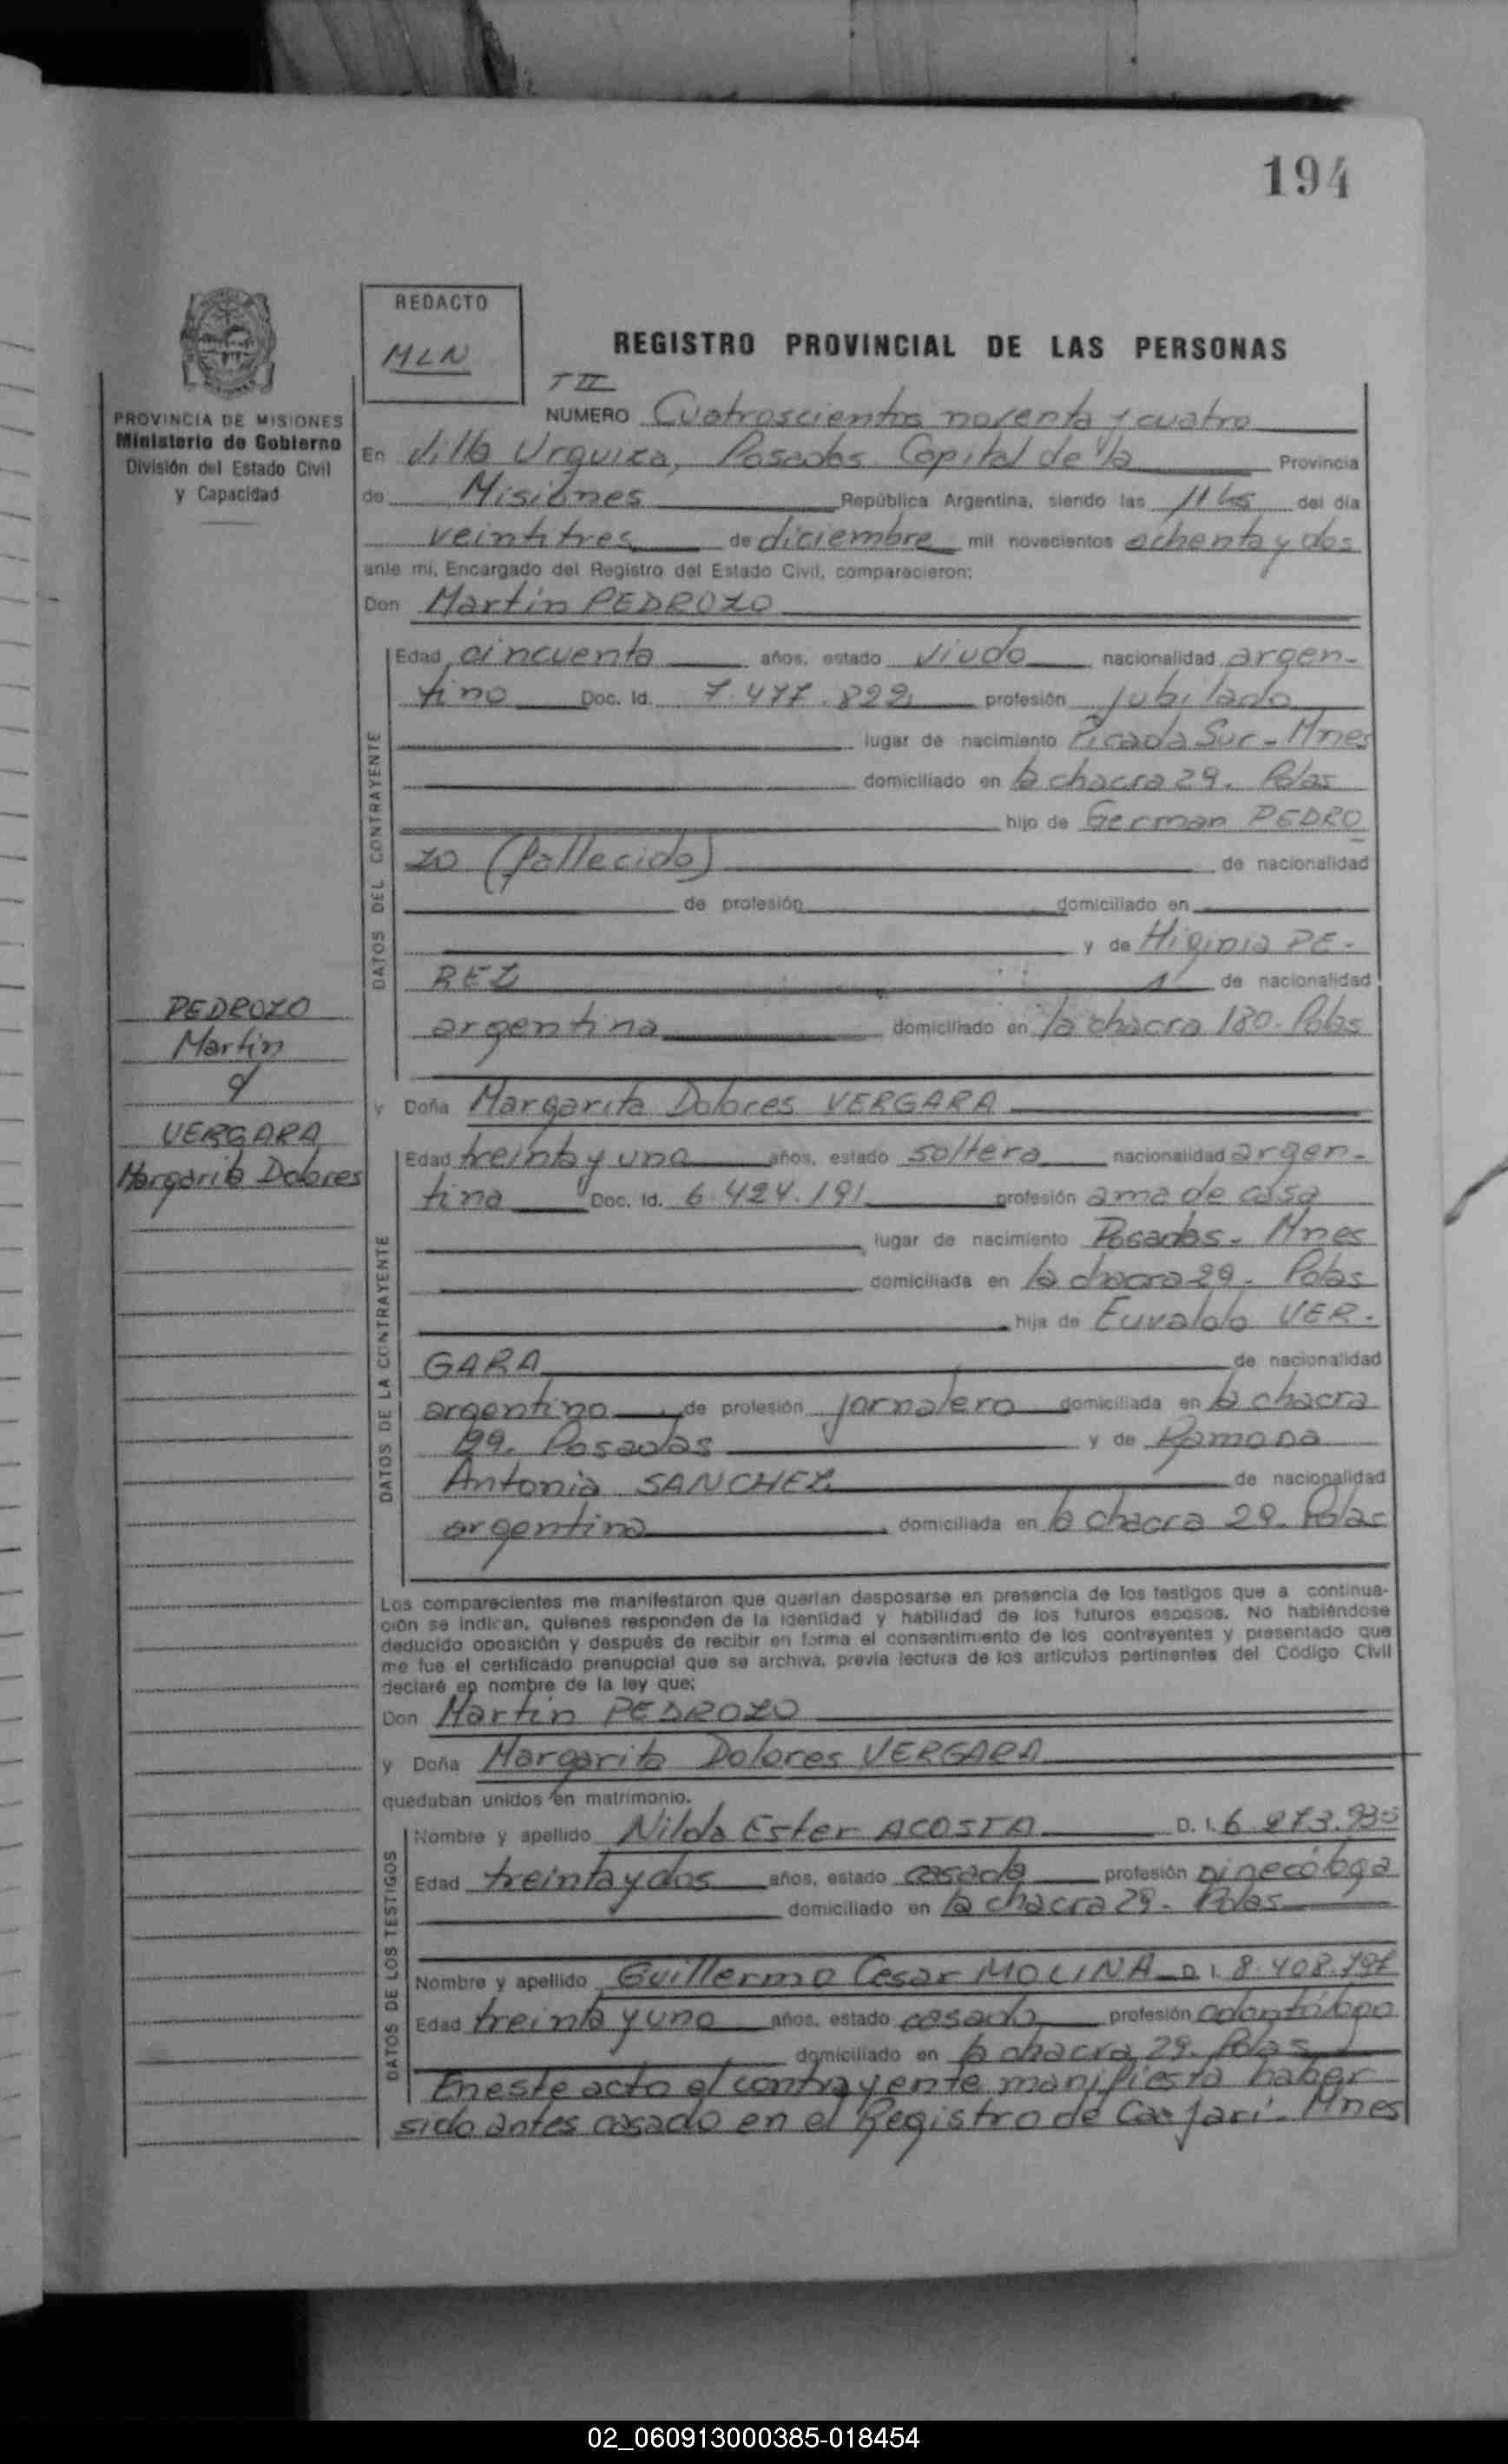 194
REDACTO
MLN
REGISTRO PROVINCIAL DE LAS PERSONAS
T II
PROVINCIA DE MISIONES
Ministerio de Gobierno
División del Estado Civil
y Capacidad
NUMERO Cuatroscientos noventa y cuatro
En Villa Urquiza, Posadas. Capital de la Provincia
de Misiones República Argentina, siendo las 11 hs del día
veintitres de diciembre mil novecientos ochenta y dos
ante mí, Encargado del Registro del Estado Civil, comparecieron:
Don Martín PEDROZO
DATOS DEL CONTRAYENTE
Edad cincuenta años, estado viudo nacionalidad argen-
tino Doc. Id. 7.477.822 profesión jubilado
lugar de nacimiento Picada Sur - Mnes
domiciliado en la chacra 29. Pdas
hijo de German PEDRO
ZO (fallecido) de nacionalidad
de profesión domiciliado en
y de Higinia PE-
REZ de nacionalidad
argentina domiciliado en la chacra 180. Pdas
PEDROZO
Martín
y
VERGARA
Margarita Dolores
y Doña Margarita Dolores VERGARA
DATOS DE LA CONTRAYENTE
Edad treinta y uno años, estado soltera nacionalidad argen-
tina Doc. Id. 6.424.191 profesión ama de casa
lugar de nacimiento Posadas - Mnes
domiciliada en la chacra 29. Pdas
hija de Euvaldo VER-
GARA de nacionalidad
argentino de profesión jornalero domiciliada en la chacra
29. Posadas y de Ramona
Antonia SANCHEZ de nacionalidad
argentina domiciliada en la chacra 29. Pdas
Los comparecientes me manifestaron que querían desposarse en presencia de los testigos que a continua-
ción se indican, quienes responden de la identidad y habilidad de los futuros esposos. No habiéndose
deducido oposición y después de recibir en forma el consentimiento de los contrayentes y presentado que
me fue el certificado prenupcial que se archiva, previa lectura de los artículos pertinentes del Código Civil
declaré en nombre de la ley que:
Don Martín PEDROZO
y Doña Margarita Dolores VERGARA
quedaban unidos en matrimonio.
DATOS DE LOS TESTIGOS
Nombre y apellido Nilda Ester ACOSTA D. I. 6.273.935
Edad treinta y dos años, estado casada profesión ginecóloga
domiciliado en la chacra 29. Pdas
Nombre y apellido Guillermo Cesar MOLINA D I. 8.408.797
Edad treinta y uno años, estado casado profesión odontólogo
domiciliado en la chacra 29. Pdas
En este acto el contrayente manifiesta haber
sido antes casado en el Registro de Caa Jari. Mnes
02_060913000385-018454